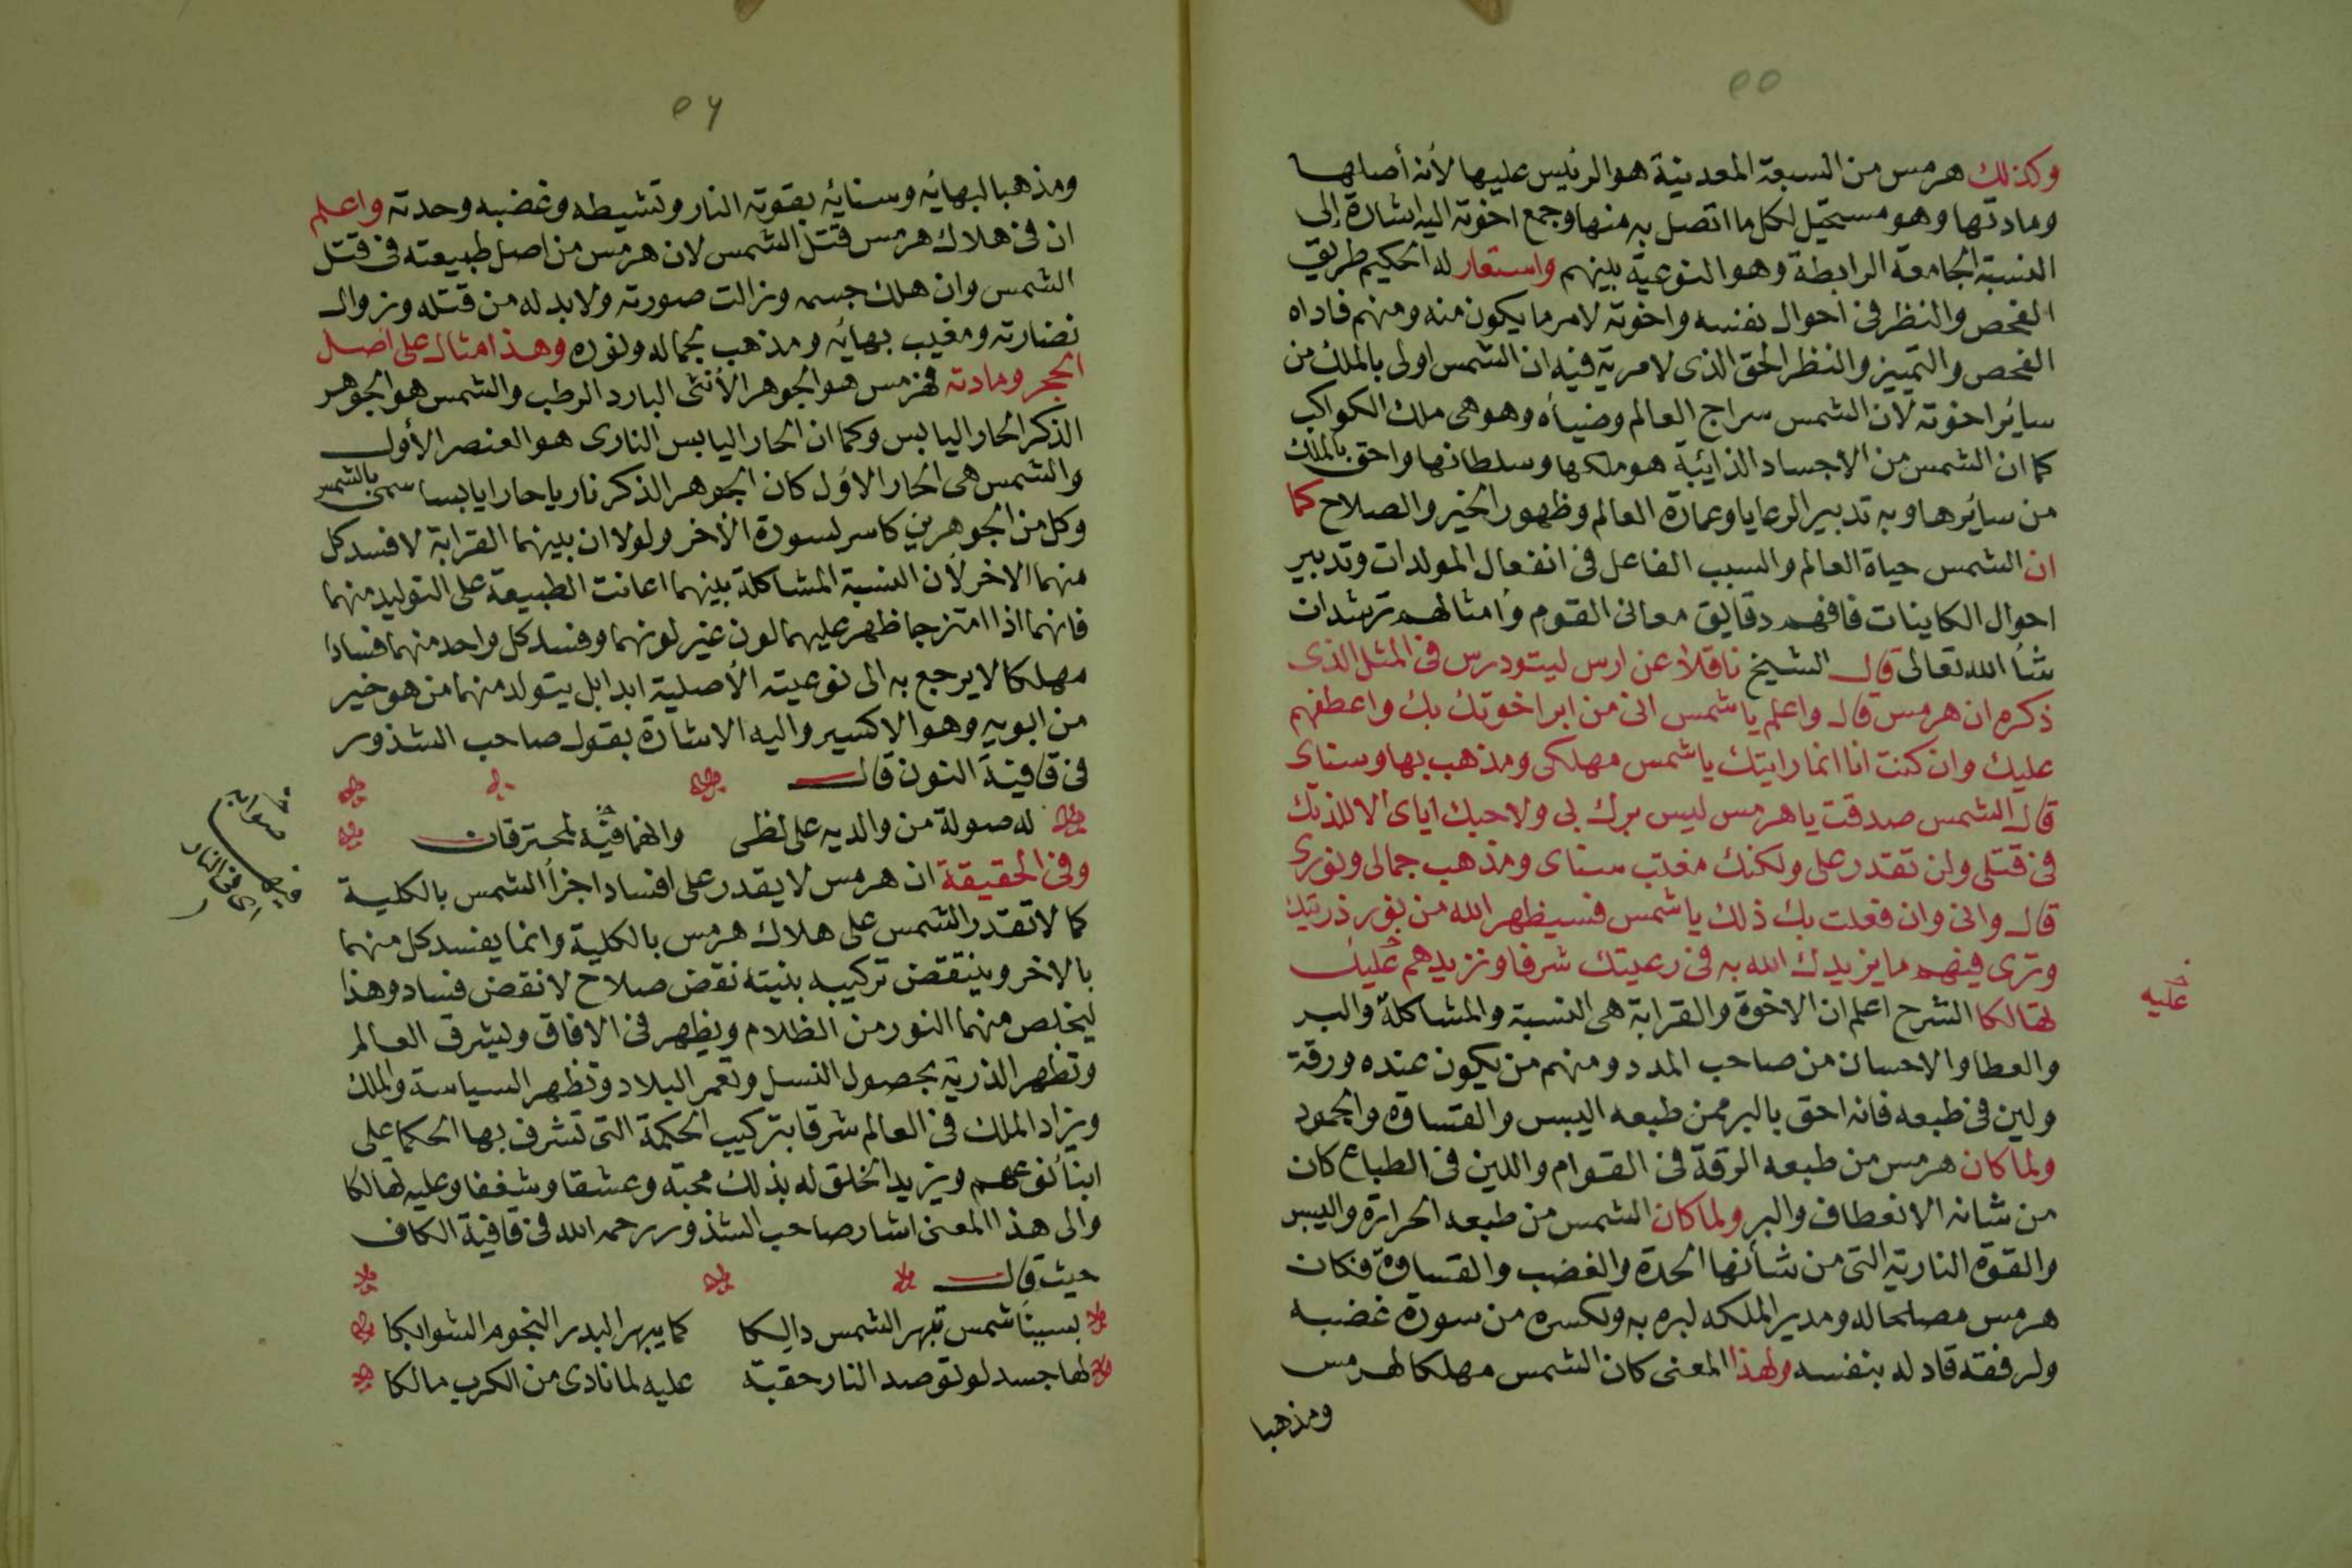 ٥٥
وكذلك هرمس من السبعة المعدنية هو الرئيس عليها لأنه أصلها
ومادتها وهو مستحيل لكل ما اتصل به منها وجمع اخوته اليه اشارة إلى
النسبة الجامعة الرابطة وهو النوعية بينهم واستعار له الحكيم طريق
الفحص والنظر فى احوال نفسه واخوته لامر ما يكون منه ومنهم فاداه
الفحص والتمييز والنظر الحق الذى لا مرية فيه ان الشمس اولى بالملك من
سائر اخوته لأن الشمس سراج العالم وضياه وهو هى ملك الكواكب
كما ان الشمس من الاجساد الذائبة هو ملكها وسلطانها واحق بالملك
من سائرها وبه تدبير الرعايا وعمارة العالم وظهور الخير والصلاح كما
ان الشمس حياة العالم والسبب الفاعل فى انفعال المولدات وتدبير
احوال الكاينات فافهم دقايق معانى القوم وأمثالهم ترشدان
شأ الله تعالى قال الشيخ ناقلا عن ارس ليتودرس فى المثل الذى
ذكره ان هرمس قال واعلم يا شمس انى من ابر اخوتك بك واعطفهم
عليك وان كنت انا انما رايتك يا شمس مهلكى ومذهب بها وسناى
قال الشمس صدقت يا هرمس ليس برك بى ولا حبك اياى الا للذتك
فى قتلى ولن تقدر على ولكنك مغيب سناى ومذهب جمالى ونورى
قال وانى وان فعلت بك ذلك يا شمس فسيظهر الله من نور ذريتك
وترى فيهم ما يزيدك الله به فى رعيتك شرفا ونزيدهم عليك
عليه
تهالكا الشرح اعلم ان الاخوة والقرابة هى النسبة والمشاكلة والبر
والعطا والاحسان من صاحب المدد ومنهم من يكون عنده ورقة
ولين فى طبعه فانه احق بالبر ممن طبعه اليبس والقساوه والجمود
ولما كان هرمس من طبعه الرقة فى القوام واللين فى الطباع كان
من شانه الانعطاف والبر ولما كان الشمس من طبعه الحرارة واليبس
والقوة النارية التى من شأنها الحدة والغضب والقساوة فكان
هرمس مصلحا له ومدير الملكه لبره به ولكسره من سورة غضبه
ولرفقه قاد له بنفسه ولهذا المعنى كان الشمس مهلكا لهرمس
ومذهبا
٥٦
ومذهبا لبهائه وسنائه بقوته النار وتشيطه وغضبه وحدته واعلم
ان فى هلاك هرمس قتل الشمس لان هرمس من اصل طبيعته فى قتل
الشمس وان هلك جسمه وزالت صورته ولا بد له من قتله وزوال
نضارته ومغيب بهائه ومذهب بجماله ونوره وهذا مثال على اصل
الحجر ومادته فهرمس هو الجوهر الأنثى البارد الرطب والشمس هو الجوهر
الذكر الحار اليابس وكما ان الحار اليابس النارى هو العنصر الأول
والشمس هى الحار الاول كان الجوهر الذكر ناريا حارا يابسا سمى بالشمس
وكل من الجوهرين كاسر لسورة الأخر ولولا ان بينهما القرابة لافسد كل
منهما الاخر لأن النسبة المشاكلة بينهما اعانت الطبيعة على التوليد منهما
فانهما اذا امتزجا ظهر عليهما لون غير لونهما وفسد كل واحد منهما فسادا
مهلكا لا يرجع به الى نوعيته الأصلية ابدا بل يتولد منهما من هو خير
من ابويه وهو الاكسير واليه الاشارة بقول صاحب الشذور
فى قافية النون قال
له صولة من والديه على لظى وانهما فيه لمحترقان
وفى الحقيقة ان هرمس لا يقدر على افساد اجزأ الشمس بالكلية
كما لا تقدر الشمس على هلاك هرمس بالكلية وانما يفسد كل منهما
بالاخر وينتقض تركيبه بنيته نقض صلاح لا نقض فساد وهذا
ليخلص منهما النور من الظلام ويظهر فى الافاق ويشرق العالم
وتظهر الذرية بحصول النسل وتعمر البلاد وتظهر السياسة والملك
ويزاد الملك فى العالم شرقا بتركيب الحكمة التى تشرف بها الحكما على
ابنأ نوعهم ويزيد الخلق له بذلك محبة وعشقا وشغفا وعليه تهالكا
والى هذا المعنى اشار صاحب الشذور رحمه الله فى قافية الكاف
حيث قال
بسينا شمس تبهر الشمس دالكا كما يبهر البدر النجوم الشوابكا
لها جسد لو توصد النار حقبة عليه لما نادى من الكرب مالكا